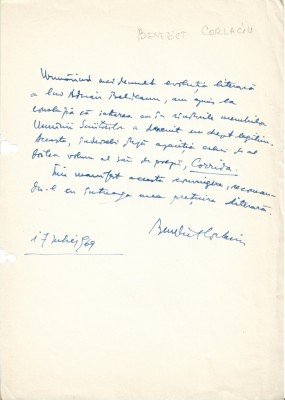 BENEDICT CORLACIU
Urmărind mai demult evoluția literară
a lui Adrian Beldeanu, am ajuns la
concluzia că intrarea sa în rîndurile membrilor
Uniunii Scriitorilor a devenit un drept legitim.
Aceasta, îndeosebi după apariția celui de al
doilea volum al său de poezii, Corrida.
Îmi manifest această convingere, recoman-
dîndu-l cu întreaga mea prețuire literară.
Benedict Corlaciu
17 iulie 969